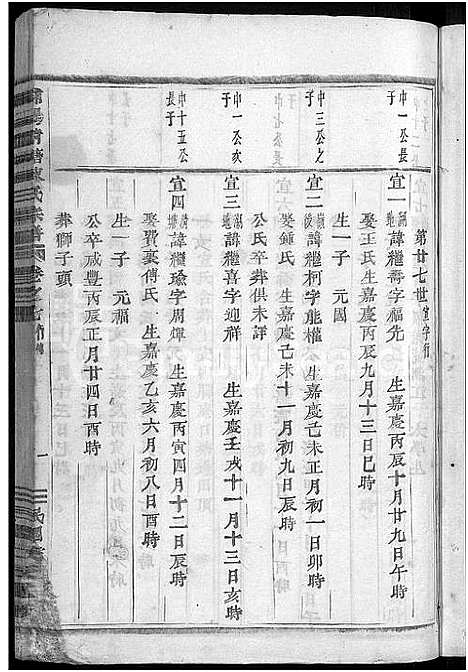 第廿七世宜字行
申一公長子
宜一 諱繼喬字福先 生嘉慶丙辰十月廿九日午時
娶王氏生嘉慶丙辰九月十三日巳時
生一子 元國
申三公之子
宜二 諱繼柯字能權 生嘉慶己未正月初一日卯時
娶鍾氏 生嘉慶己未十一月初九日辰時
公氏卒葬俱未詳
申一公次子
宜三 諱繼喜字迎祥 生嘉慶壬戌十一月十三日亥時
申十五公長子
宜四 諱繼瑜字周煇 生嘉慶丙寅四月十二日辰時
娶費裏傅氏 生嘉慶乙亥六月初八日酉時
生一子 元福
公卒咸豐丙辰正月廿四日酉時
葬獅子頭
陳氏宗譜 卷之七
一